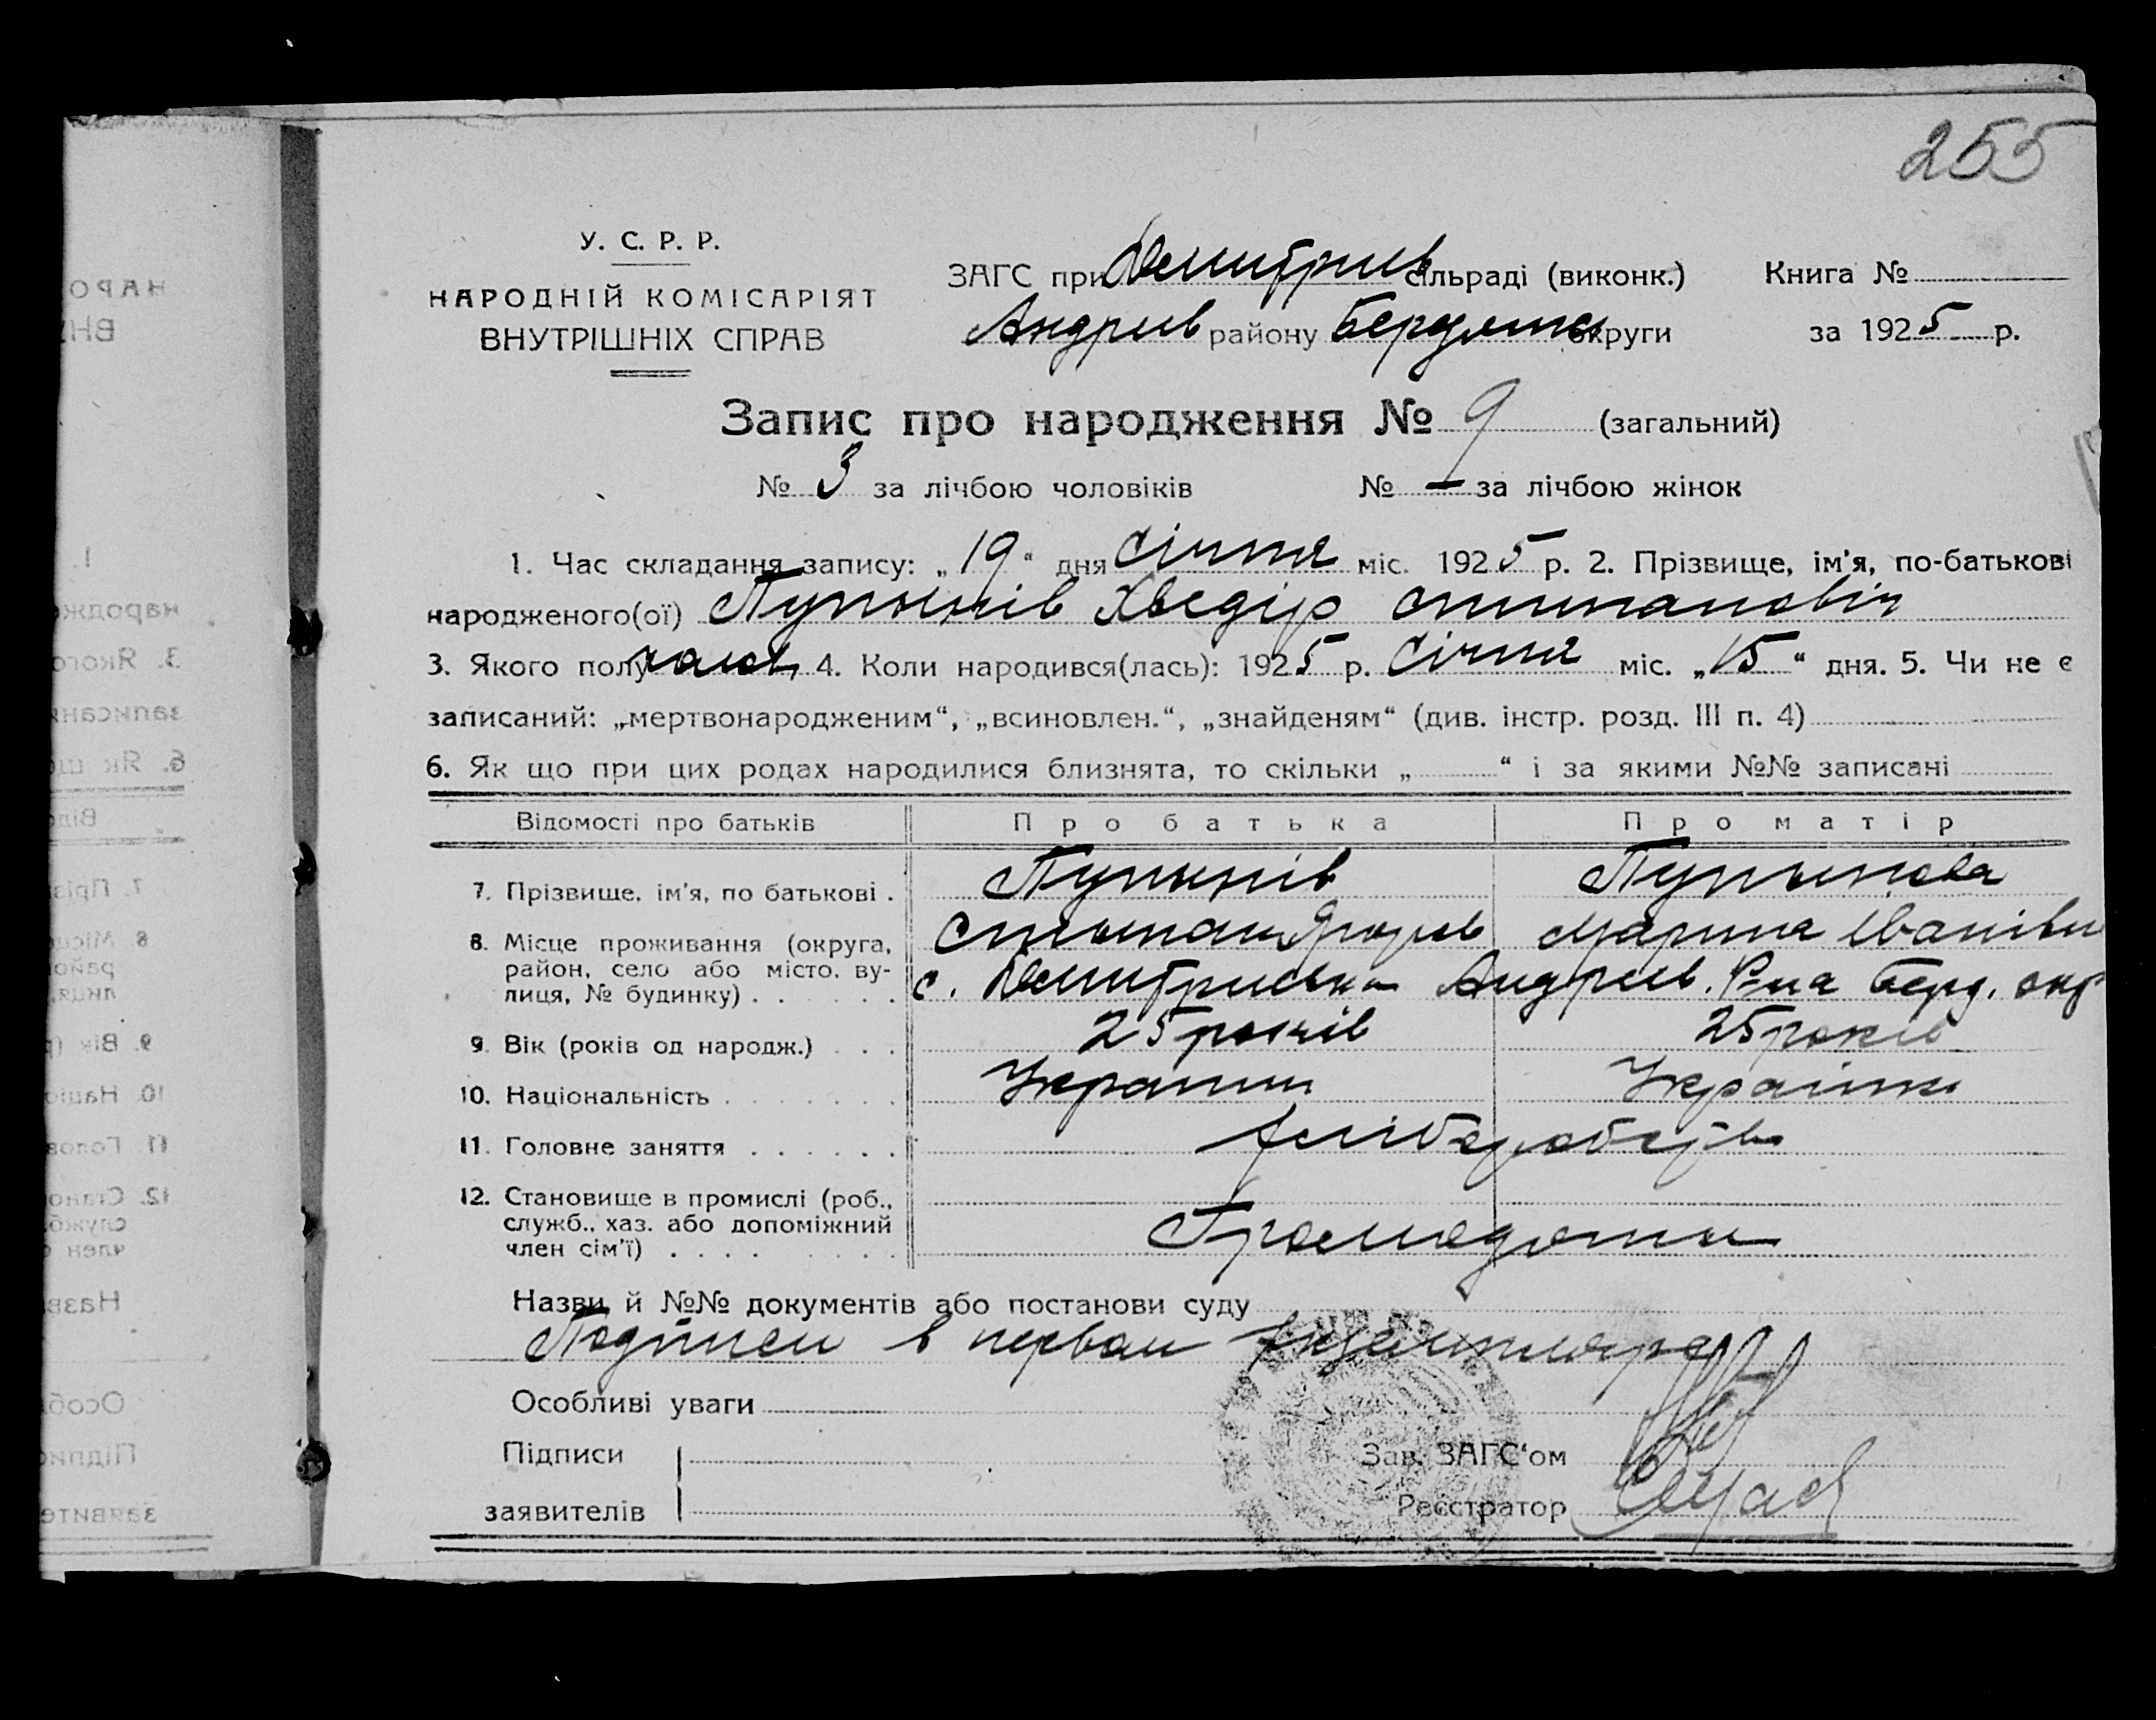 255
У. С. Р. Р.
НАРОДНІЙ КОМІСАРІЯТ
ВНУТРІШНІХ СПРАВ
ЗАГС при Дмитрив сільраді (виконк.) Книга №
Андрив району Бердянск округи за 1925 р.
Запис про народження № 9 (загальний)
№ 3 за лічбою чоловіків № – за лічбою жінок
1. Час складання запису: „19“ дня Січня міс. 1925 р. 2. Прізвище, ім'я, по-батькові
народженого(ої) Пупынів Хведір
3. Якого полу 4. Коли народився(лась): 1925 р. Січня міс. „15“ дня. 5. Чи не є
записаний: „мертвонародженим“, „всиновлен.“, „знайденям“ (див. інстр. розд. III п. 4)
6. Як що при цих родах народилися близнята, то скільки „ “ і за якими №№ записані
Відомості про батьків Про батька Про матір
7. Прізвище, ім'я, по батькові . Пупынів Пупынова
Марина Іванівн
8. Місце проживання (округа,
район, село або місто, ву-
лиця, № будинку) . . . . . с. Андрив. Р-на Берд. окр
9. Вік (років од народж.) . . . 25 років 25 років
10. Національність . . . . . . . Украинц Українк
11. Головне заняття . . . . . . хліборобств
12. Становище в промислі (роб.,
служб., хаз. або допоміжний
член сім'ї) . . . . . . . .
Назви й №№ документів або постанови суду
Подписи в первом экземпляре
Особливі уваги
Підписи
заявителів
Зав. ЗАГС'ом
Реєстратор